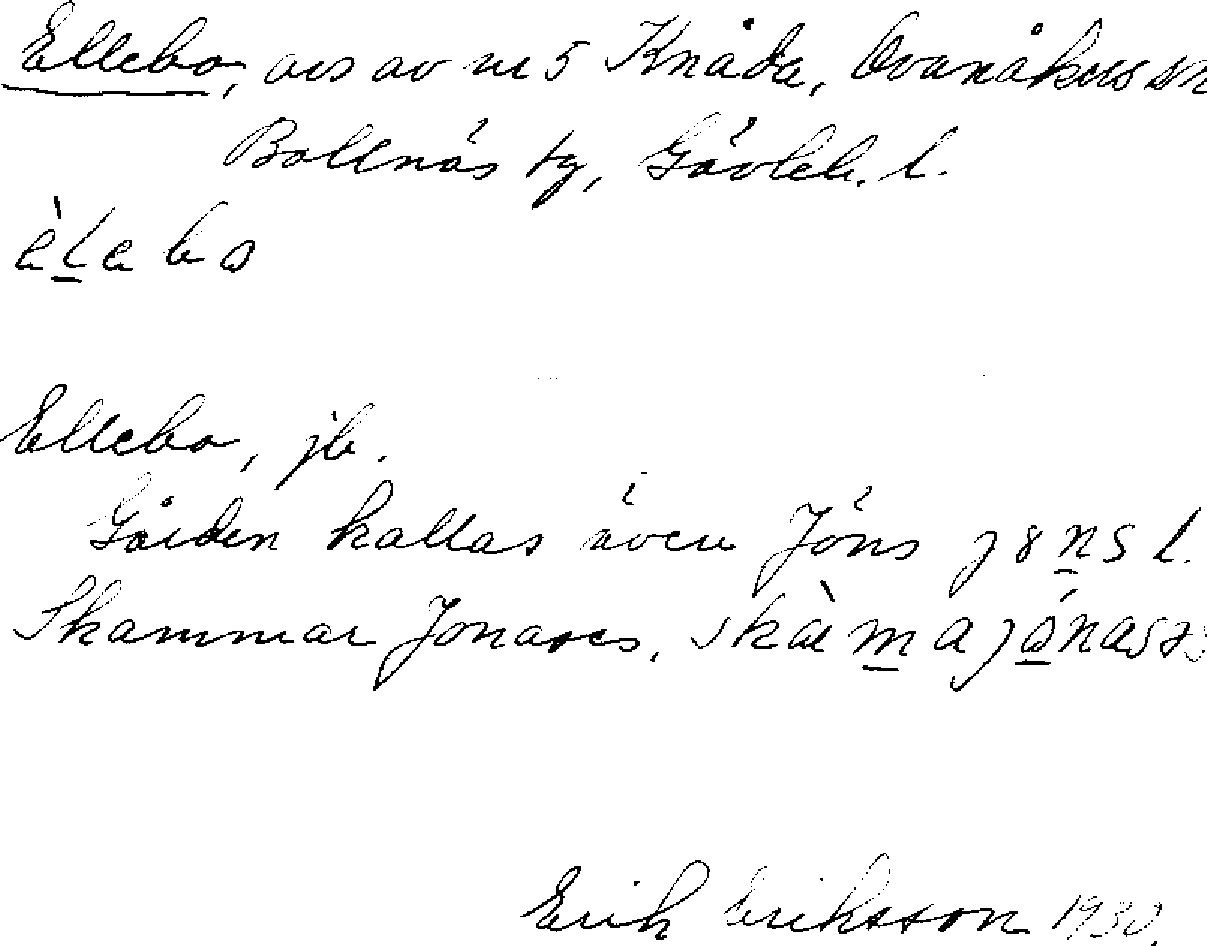 Ellebo, avs av nr 5 Knåda, Ovanåkers sn
Bollnäs tg, Gävleb. l.
èlebo
Ellebo, jb.
Gården kallas även Jöns jöns l.
Skammar Jonases, skàmajónas
Erik Eriksson 1930.